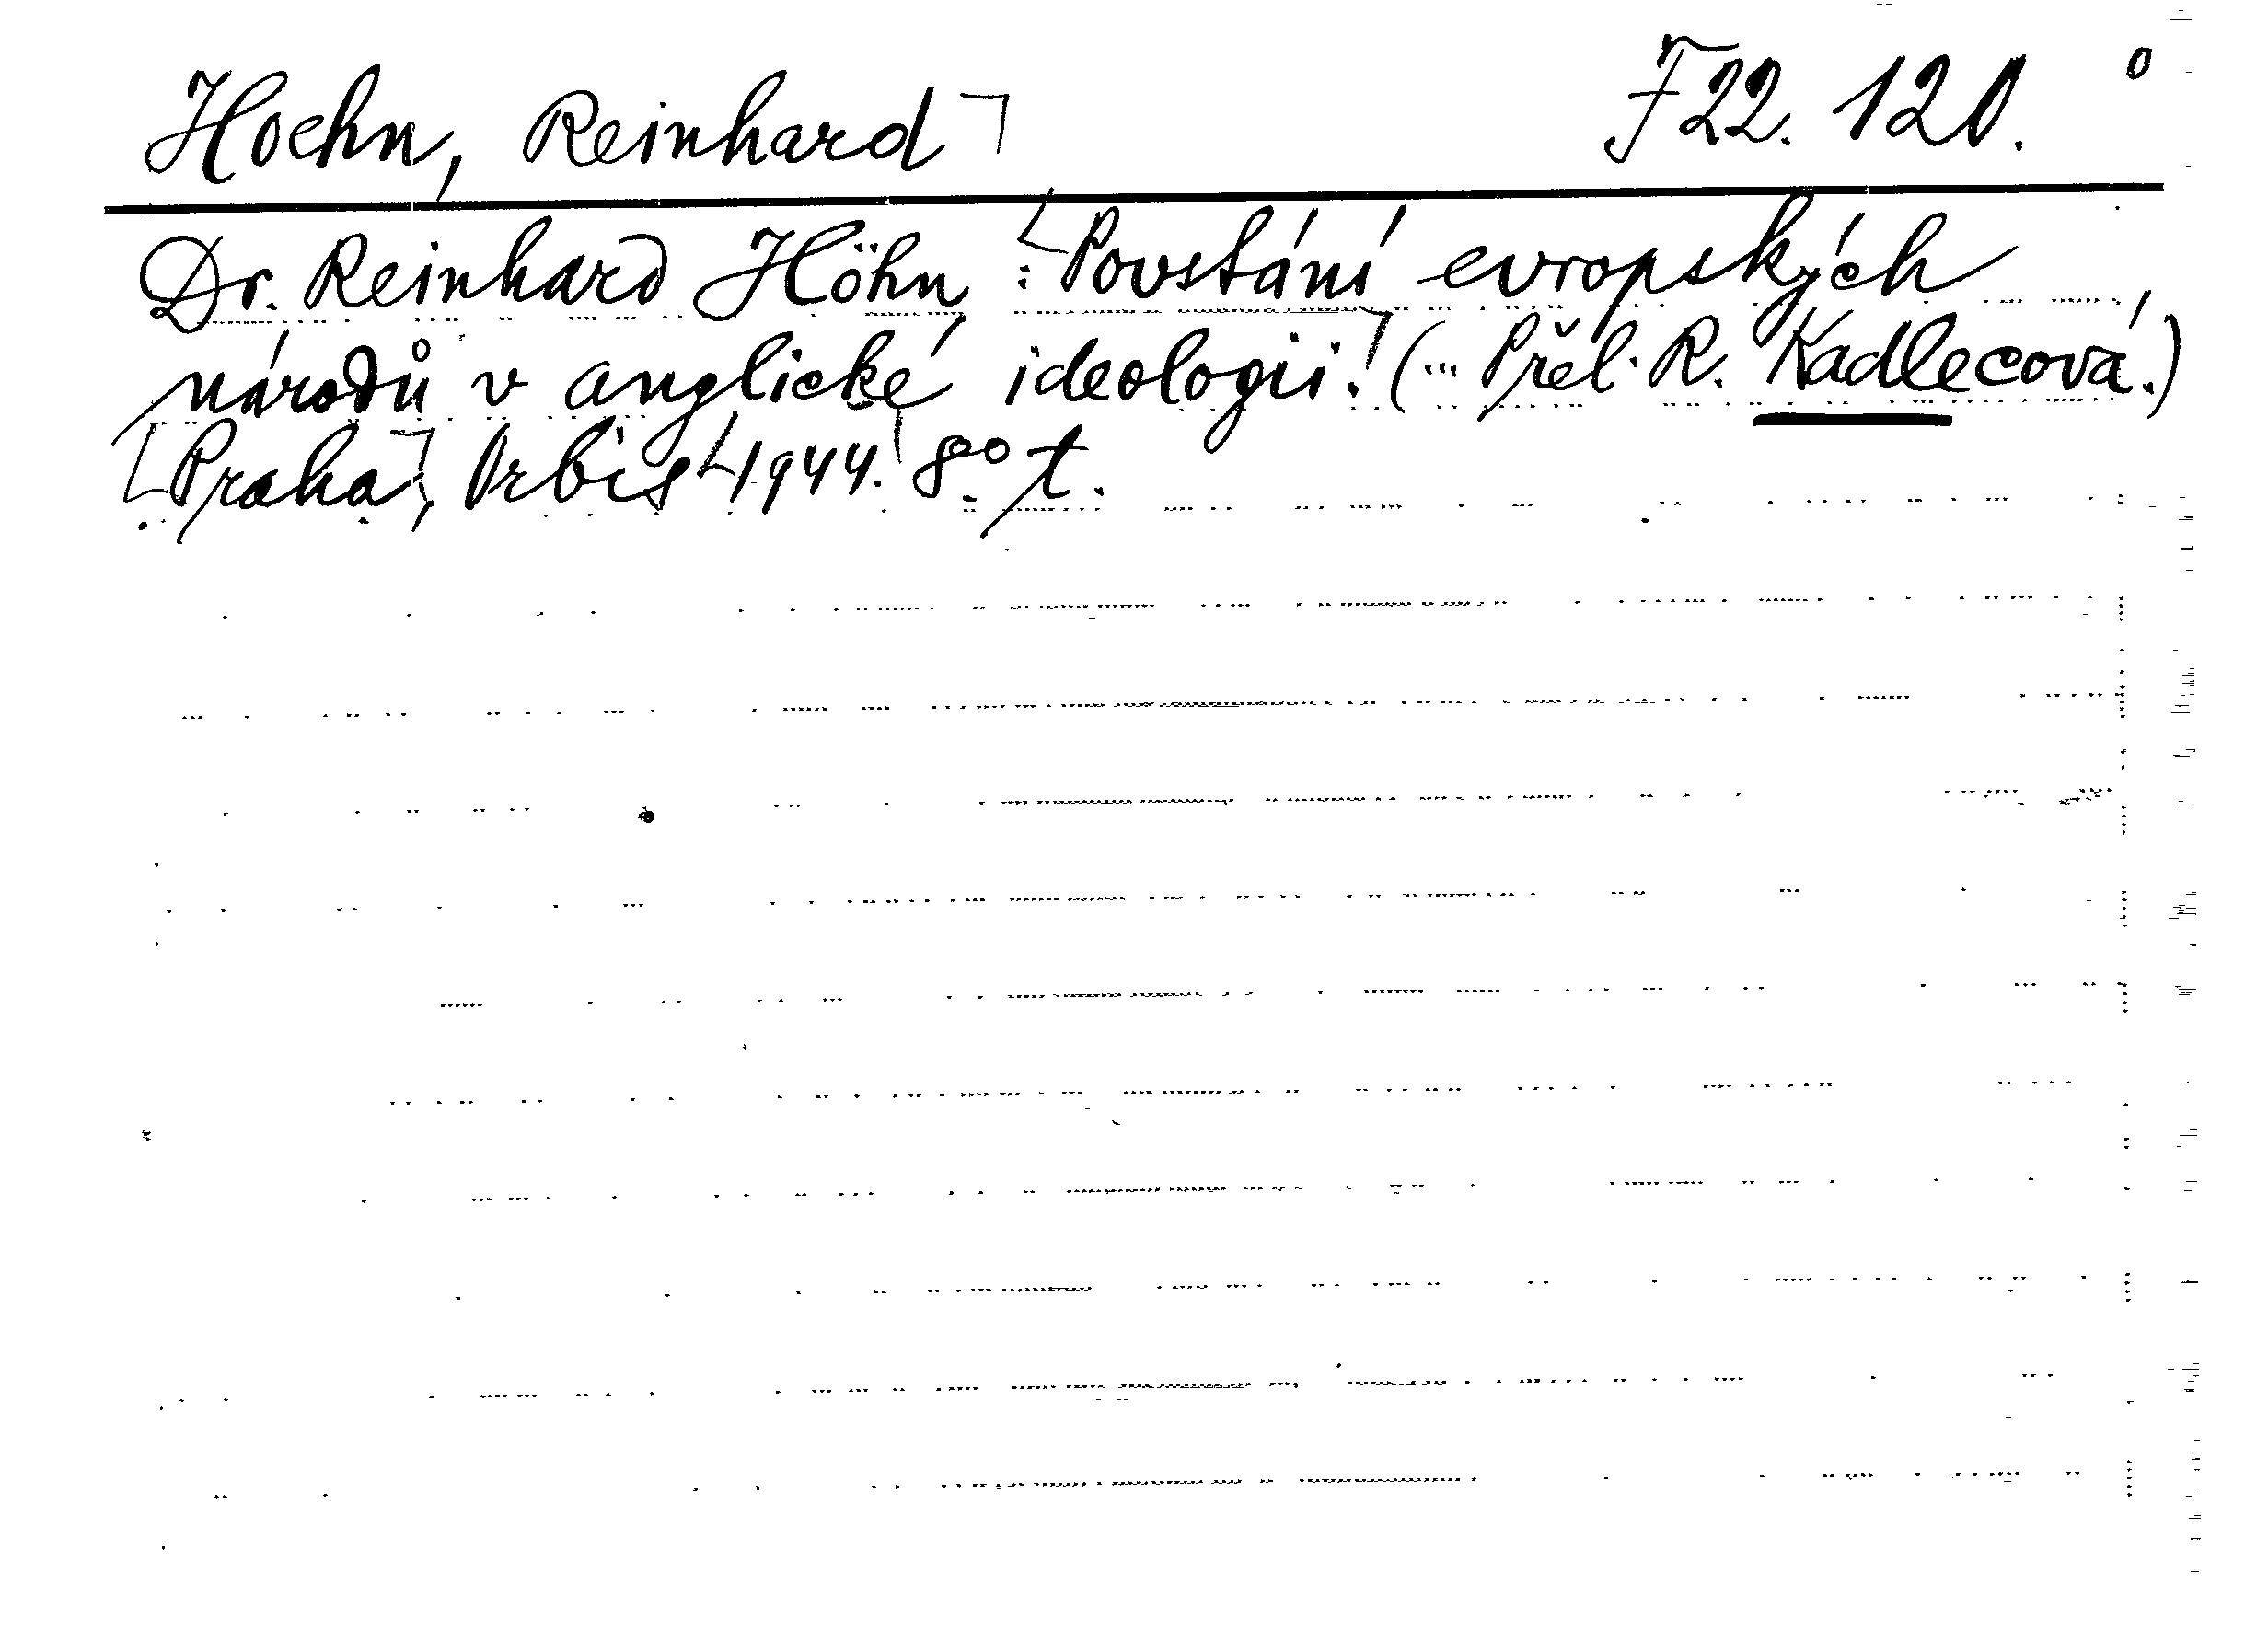 Hoehn, Reinhard F 22. 120. o
Dr. Reinhard Höhn : Povstání evropských
národů v anglické ideologii. (... Přel. R. Kadlecová.)
Praha, Orbis 1944. 8° t.